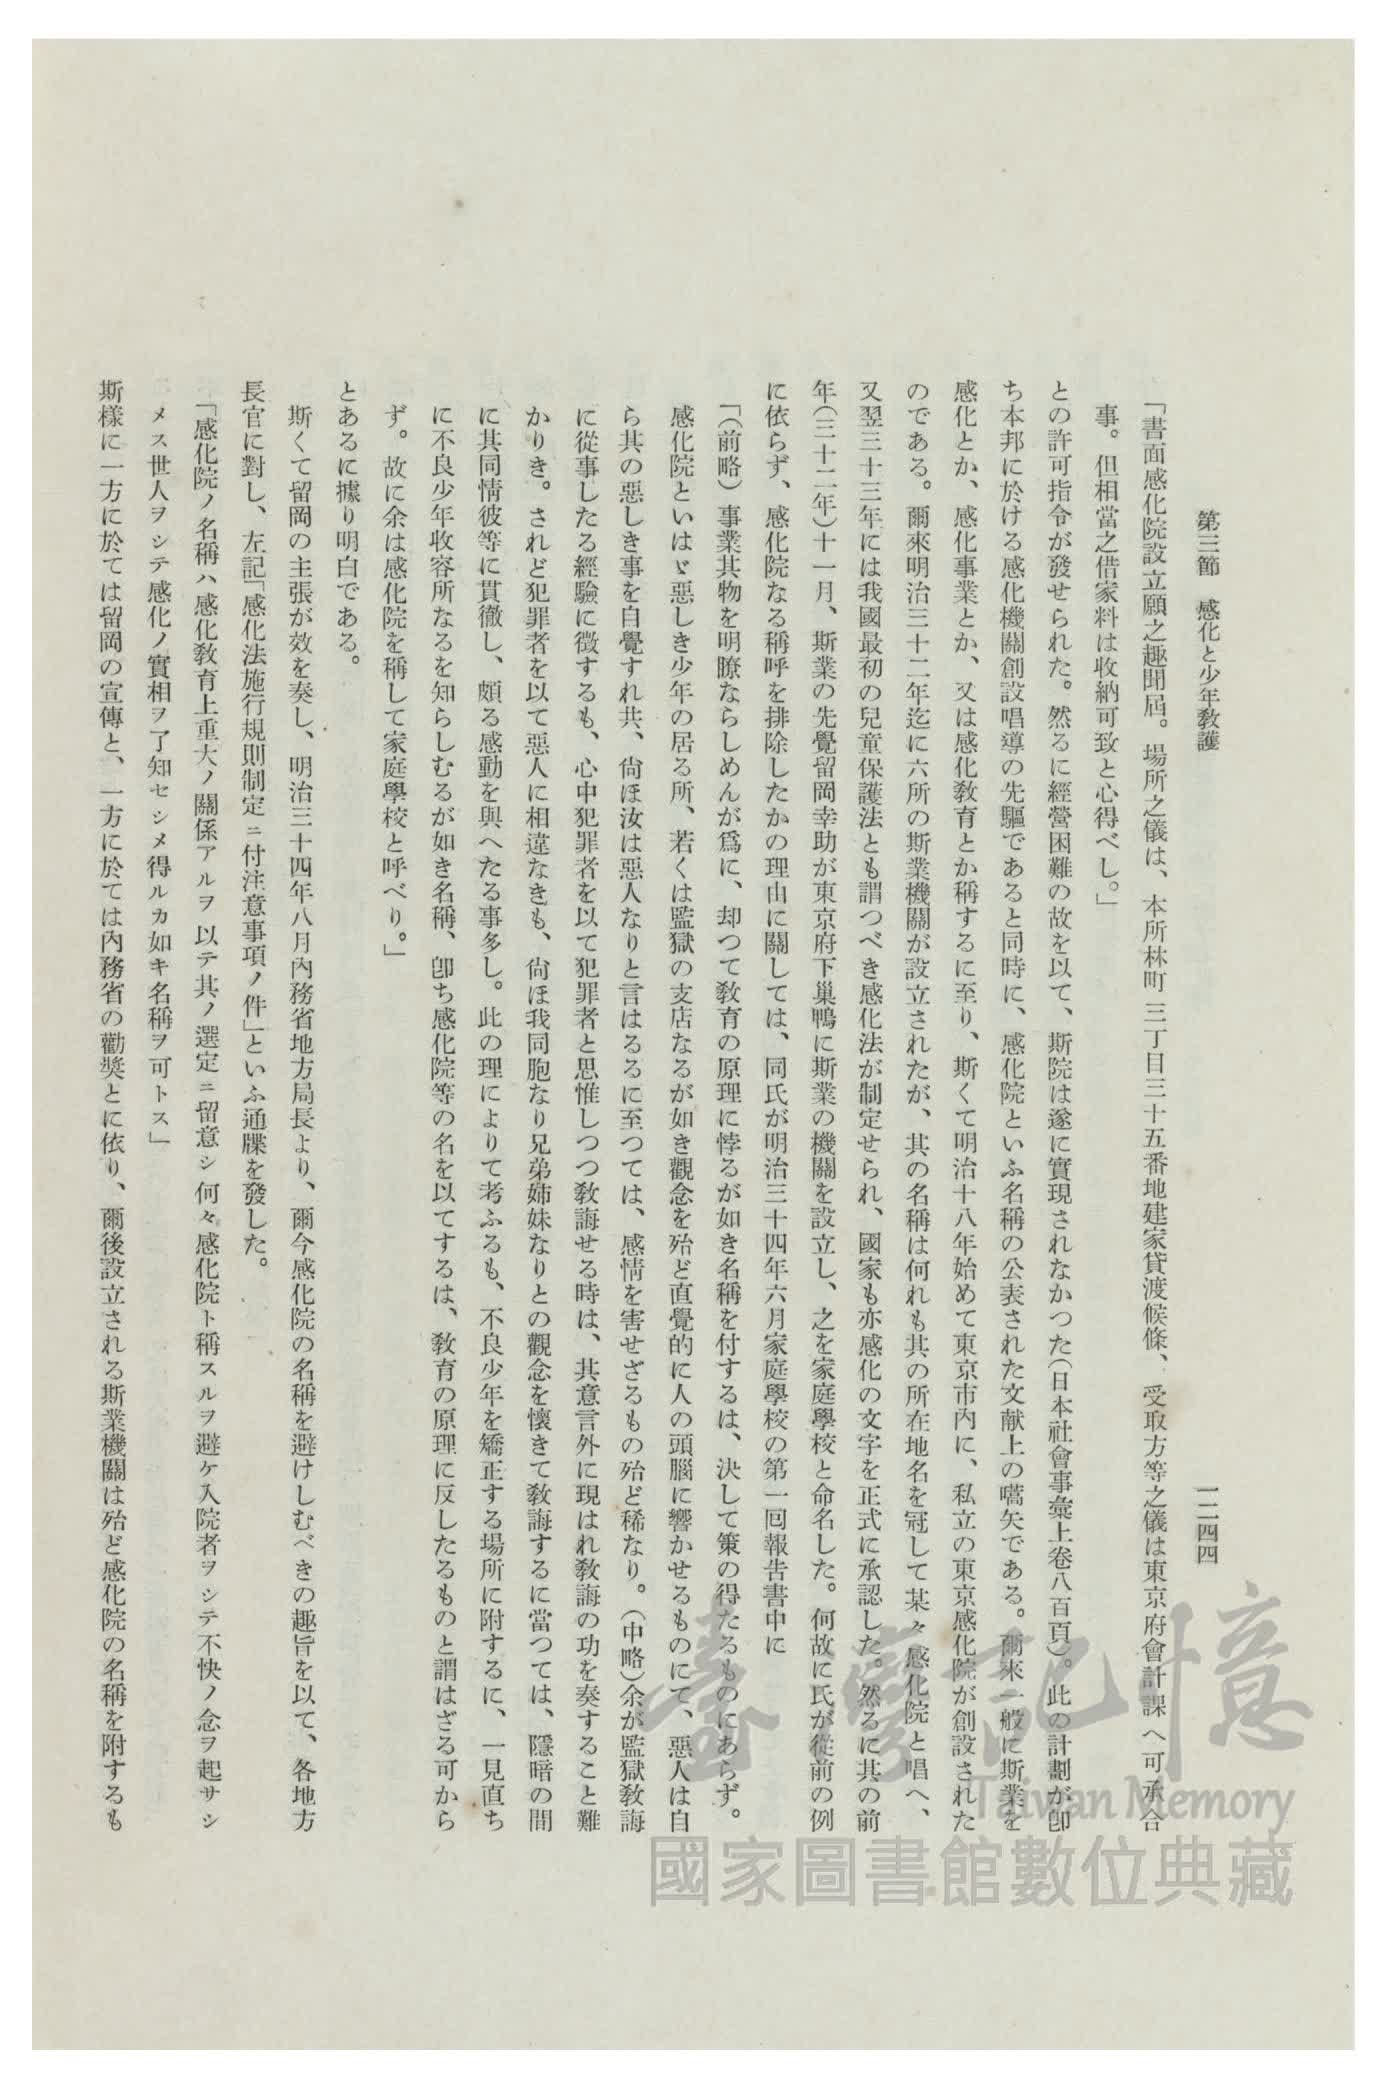 第三節　感化と少年教護
一二四四
「書面感化院設立願之趣聞屆。場所之儀は、本所林町三丁目三十五番地建家貸渡候條、受取方等之儀は東京府會計課へ可承合
事。但相當之借家料は收納可致と心得べし。」
との許可指令が發せられた。然るに經營困難の故を以て、斯院は遂に實現されなかつた(日本社會事彙上卷八百頁)。此の計劃が卽
ち本邦に於ける感化機關創設唱導の先驅であると同時に、感化院といふ名稱の公表された文献上の嚆矢である。爾來一般に斯業を
感化とか、感化事業とか、又は感化敎育とか稱するに至り、斯くて明治十八年始めて東京市內に、私立の東京感化院が創設された
のである。爾來明治三十二年迄に六所の斯業機關が設立されたが、其の名稱は何れも其の所在地名を冠して某々感化院と唱へ、
又翌三十三年には我國最初の兒童保護法とも謂つべき感化法が制定せられ、國家も亦感化の文字を正式に承認した。然るに其の前
年(三十二年)十一月、斯業の先覺留岡幸助が東京府下巢鴨に斯業の機關を設立し、之を家庭學校と命名した。何故に氏が從前の例
に依らず、感化院なる稱呼を排除したかの理由に關しては、同氏が明治三十四年六月家庭學校の第一回報告書中に
「(前略)事業其物を明瞭ならしめんが爲に、却つて敎育の原理に悖るが如き名稱を付するは、決して策の得たるものにあらず。
感化院といはゞ惡しき少年の居る所、若くは監獄の支店なるが如き觀念を殆ど直覺的に人の頭腦に響かせるものにて、惡人は自
ら其の惡しき事を自覺すれ共、尙ほ汝は惡人なりと言はるるに至つては、感情を害せざるもの殆ど稀なり。(中略)余が監獄敎誨
に從事したる經驗に徵するも、心中犯罪者を以て犯罪者と思惟しつつ敎誨せる時は、其意言外に現はれ敎誨の功を奏すること難
かりき。されど犯罪者を以て惡人に相違なきも、尙ほ我同胞なり兄弟姉妹なりとの觀念を懷きて敎誨するに當つては、隱暗の間
に其同情彼等に貫徹し、頗る感動を與へたる事多し。此の理によりて考ふるも、不良少年を矯正する場所に附するに、一見直ち
に不良少年收容所なるを知らしむるが如き名稱、卽ち感化院等の名を以てするは、敎育の原理に反したるものと謂はざる可から
ず。故に余は感化院を稱して家庭學校と呼べり。」
とあるに據り明白である。
斯くて留岡の主張が效を奏し、明治三十四年八月內務省地方局長より、爾今感化院の名稱を避けしむべきの趣旨を以て、各地方
長官に對し、左記「感化法施行規則制定ニ付注意事項ノ件」といふ通牒を發した。
「感化院ノ名稱ハ感化敎育上重大ノ關係アルヲ以テ其ノ選定ニ留意シ何々感化院ト稱スルヲ避ケ入院者ヲシテ不快ノ念ヲ起サシ
メス世人ヲシテ感化ノ實相ヲ了知セシメ得ルカ如キ名稱ヲ可トス」
斯樣に一方に於ては留岡の宣傳と、一方に於ては內務省の勸奬とに依り、爾後設立される斯業機關は殆ど感化院の名稱を附するも
臺灣記憶
Taiwan Memory
國家圖書館數位典藏